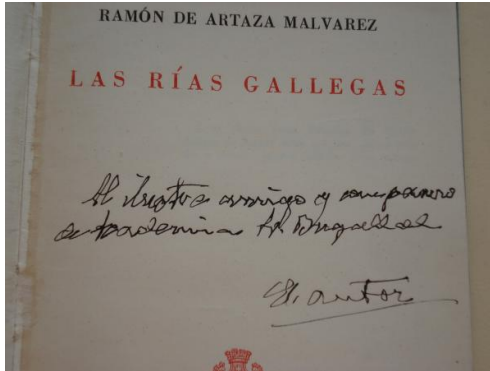 RAMÓN DE ARTAZA MALVAREZ
LAS RÍAS GALLEGAS
Al ilustre amigo y compañero
Sr. Bugallal
El autor